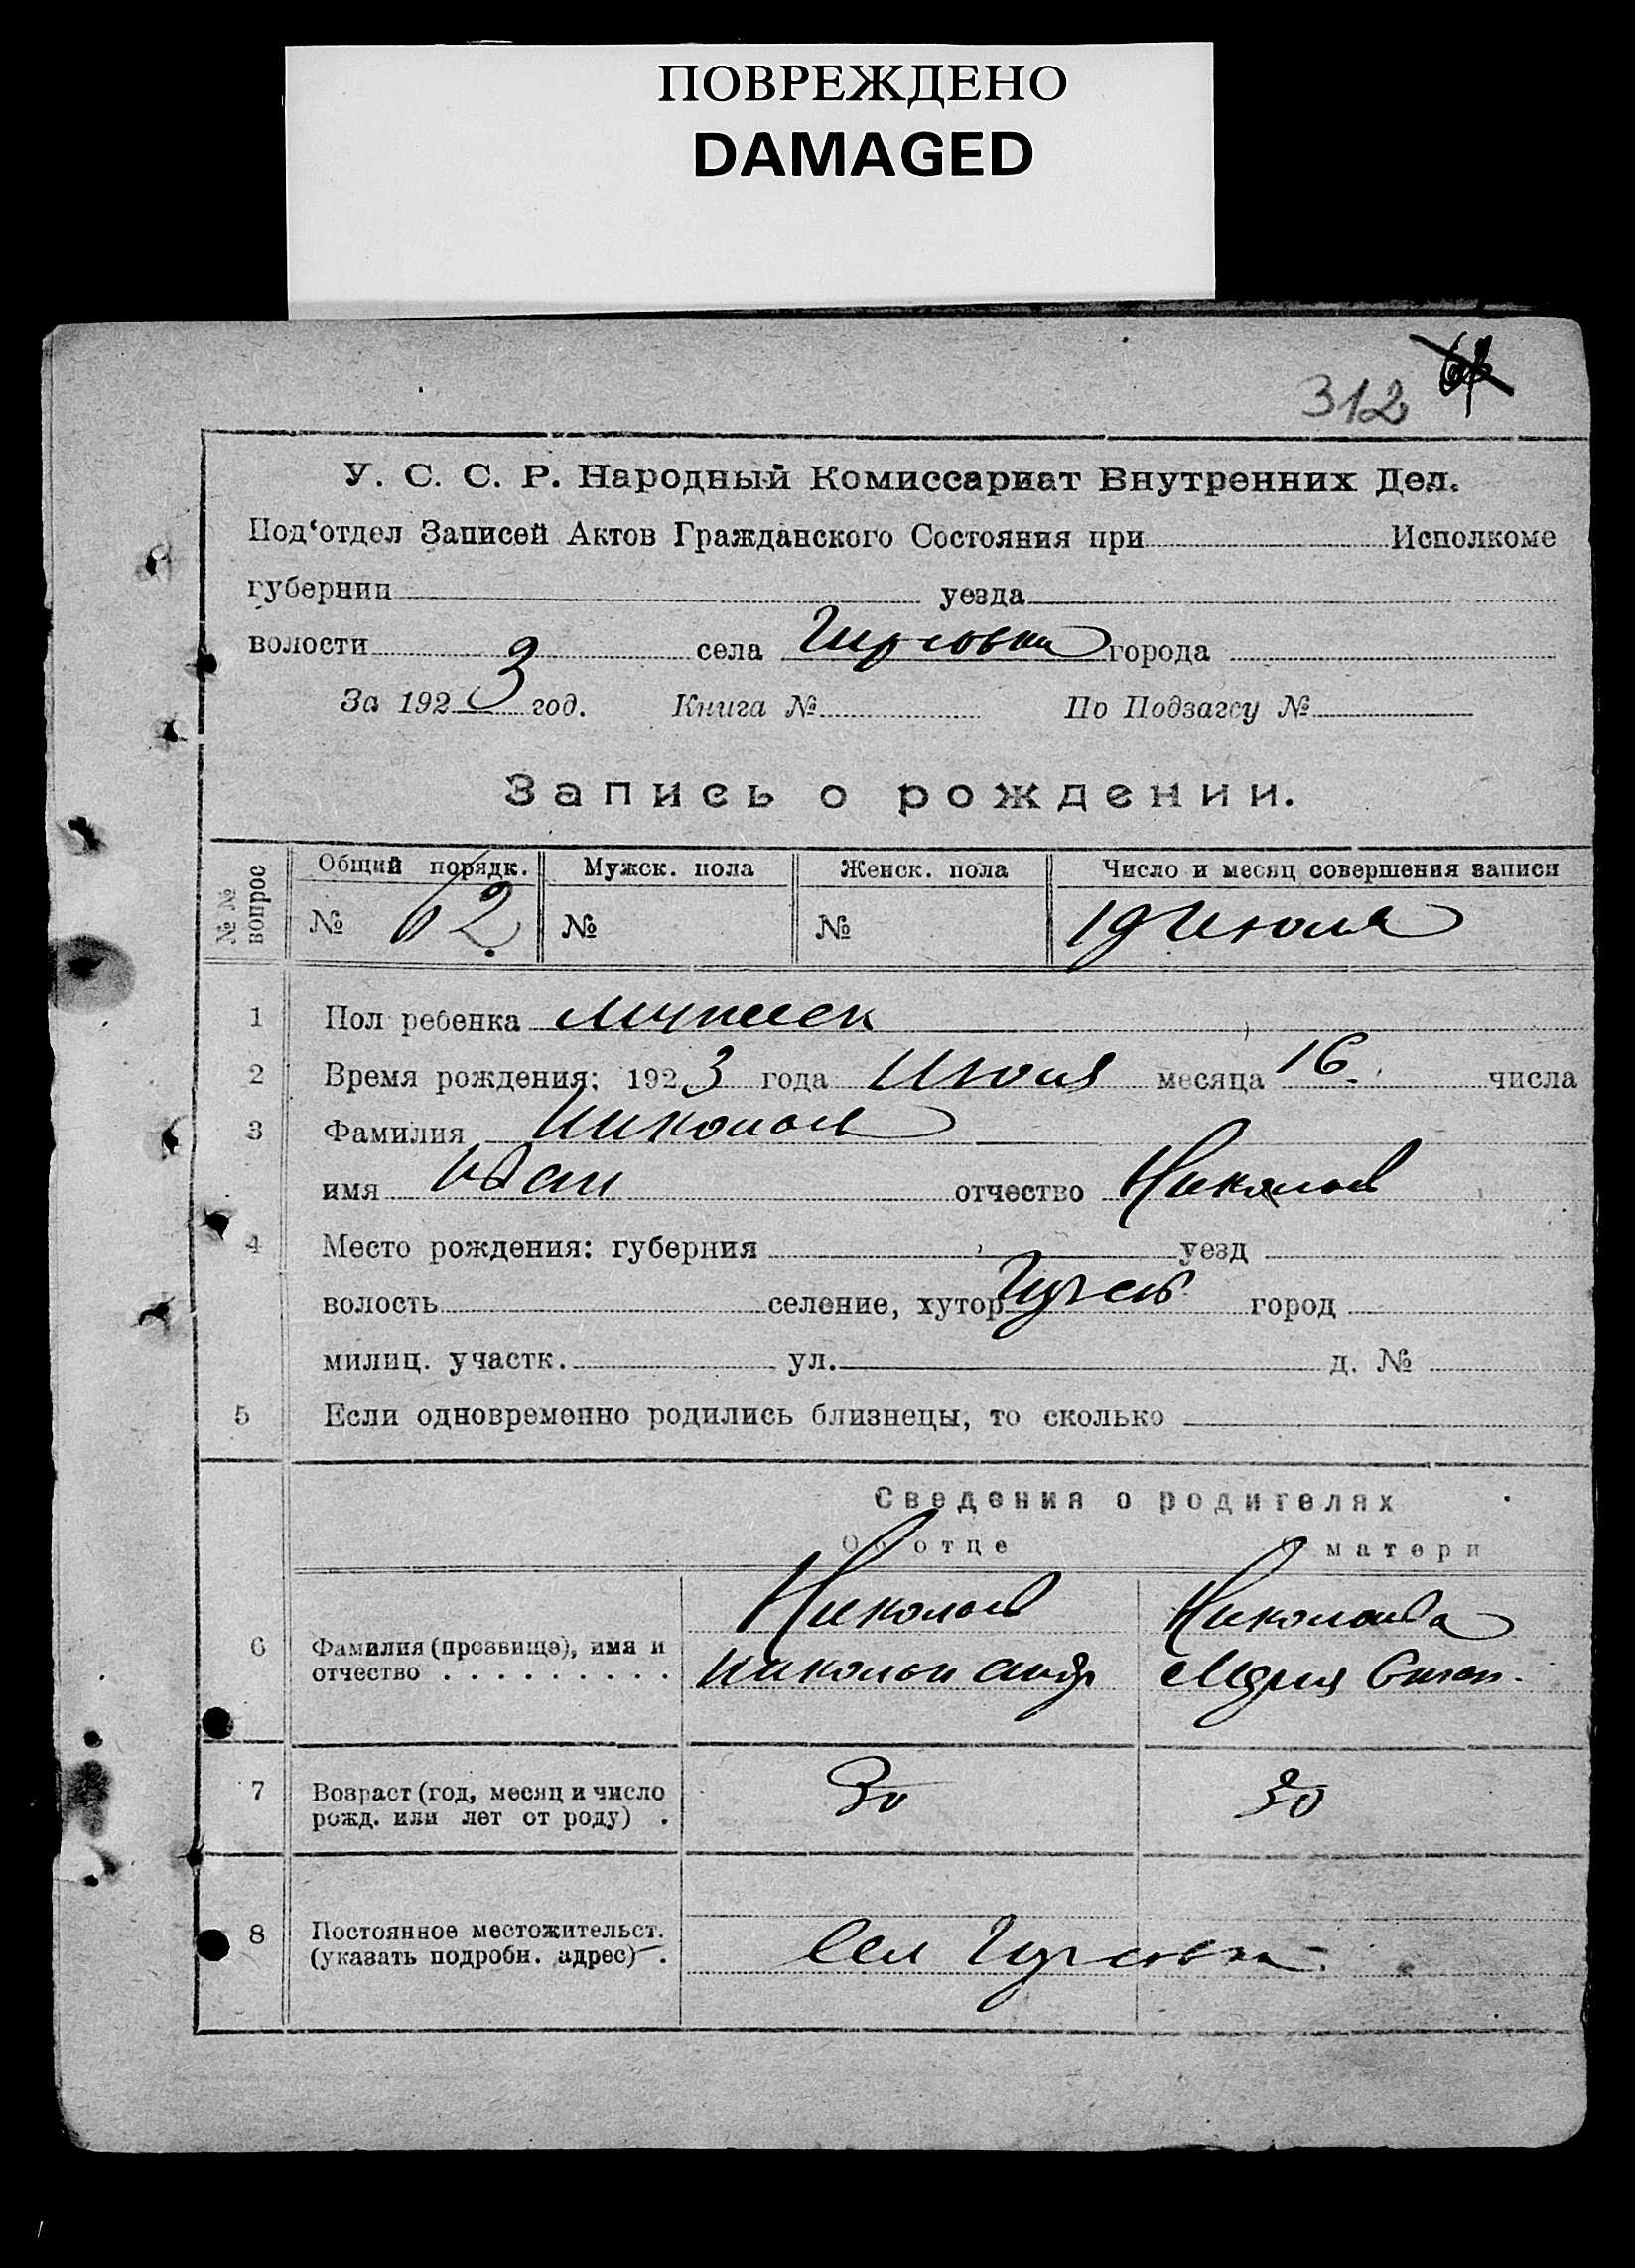 ПОВРЕЖДЕНО
DAMAGED
312
У. С. С. Р. Народный Комиссариат Внутренних Дел.
Под‘отдел Записей Актов Гражданского Состояния при Исполкоме
губернии уезда
волости села города
За 1923 год. Книга № По Подзагсу №
Запись о рождении.
№№ вопрос
Общий порядк. Мужск. пола Женск. пола Число и месяц совершения записи
№ 62 № № 19 Июля
1 Пол ребенка мужеск
2 Время рождения: 1923 года Июля месяца 16 числа
3 Фамилия Николаев
имя Иван отчество Николаев
4 Место рождения: губерния уезд
волость селение, хутор город
милиц. участк. ул. д. №
5 Если одновременно родились близнецы, то сколько
Сведения о родителях
Об отце О матери
Николаев Николаева
6 Фамилия (прозвище), имя и
отчество . . . . . . . . . Николай Андр Мария Степан.
7 Возраст (год, месяц и число
рожд. или лет от роду) . 30 30
8 Постоянное местожительст.
(указать подробн. адрес) . Сел